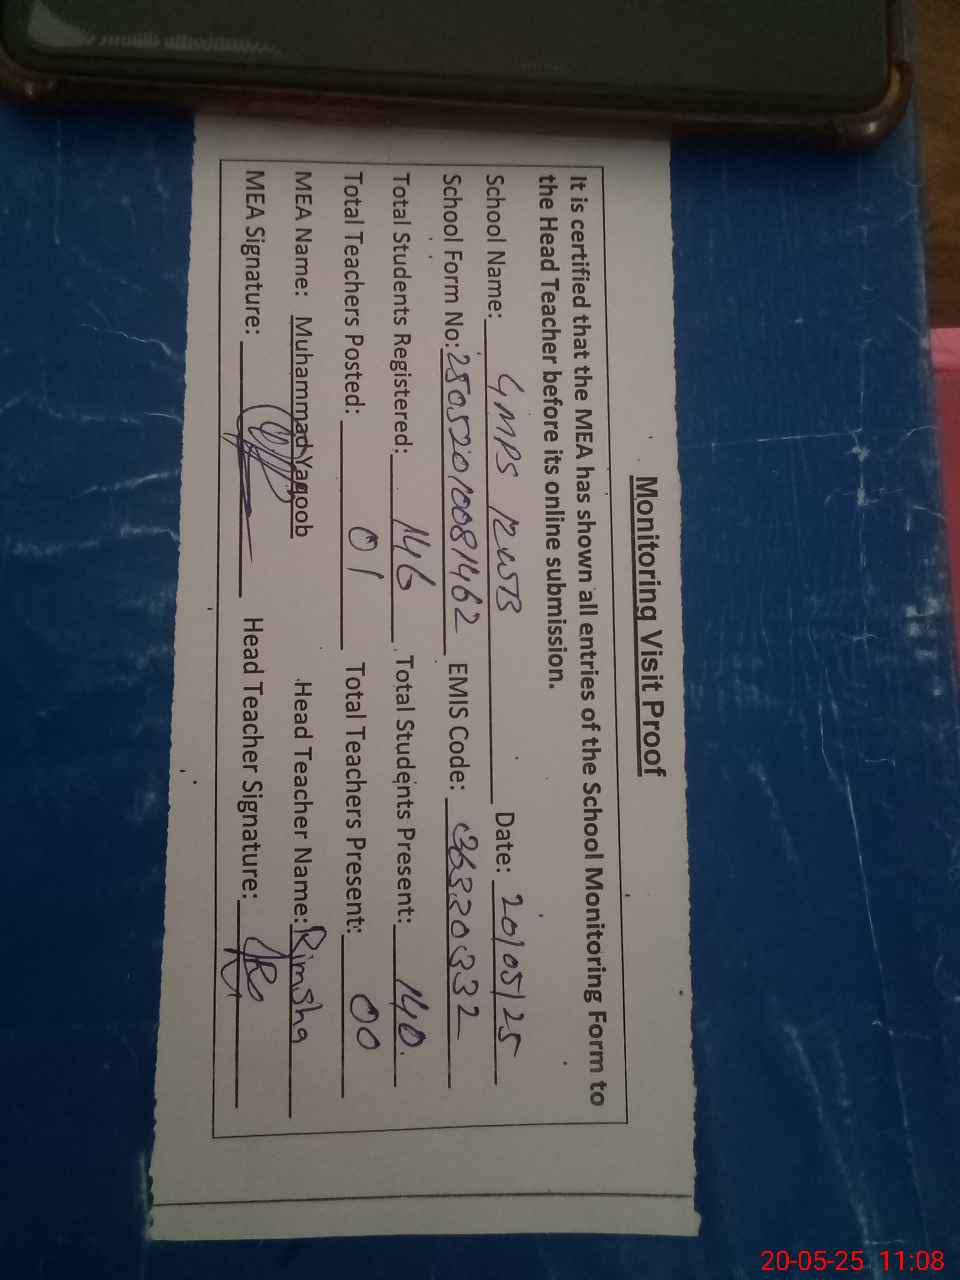 Monitoring Visit Proof
It is certified that the MEA has shown all entries of the School Monitoring Form to
the Head Teacher before its online submission.
School Name: GMPS 12WB Date: 20/05/25
School Form No: 25052010081462 EMIS Code: 36330332
Total Students Registered: 146 Total Students Present: 140.
Total Teachers Posted: 01 Total Teachers Present: 00
MEA Name: Muhammad Yaqoob Head Teacher Name: Rimsha
MEA Signature: Head Teacher Signature:
20-05-25 11:08